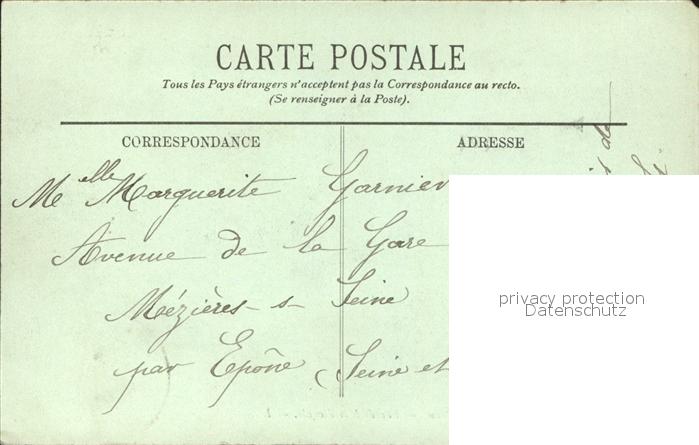 CARTE POSTALE
Tous les Pays étrangers n'acceptent pas la Correspondance au recto.
(Se renseigner à la Poste).
CORRESPONDANCE
ADRESSE
Melle Marguerite Garnier
Avenue de la Gare
Mézières-s-Seine
par Epône (Seine et
de
privacy protection
Datenschutz